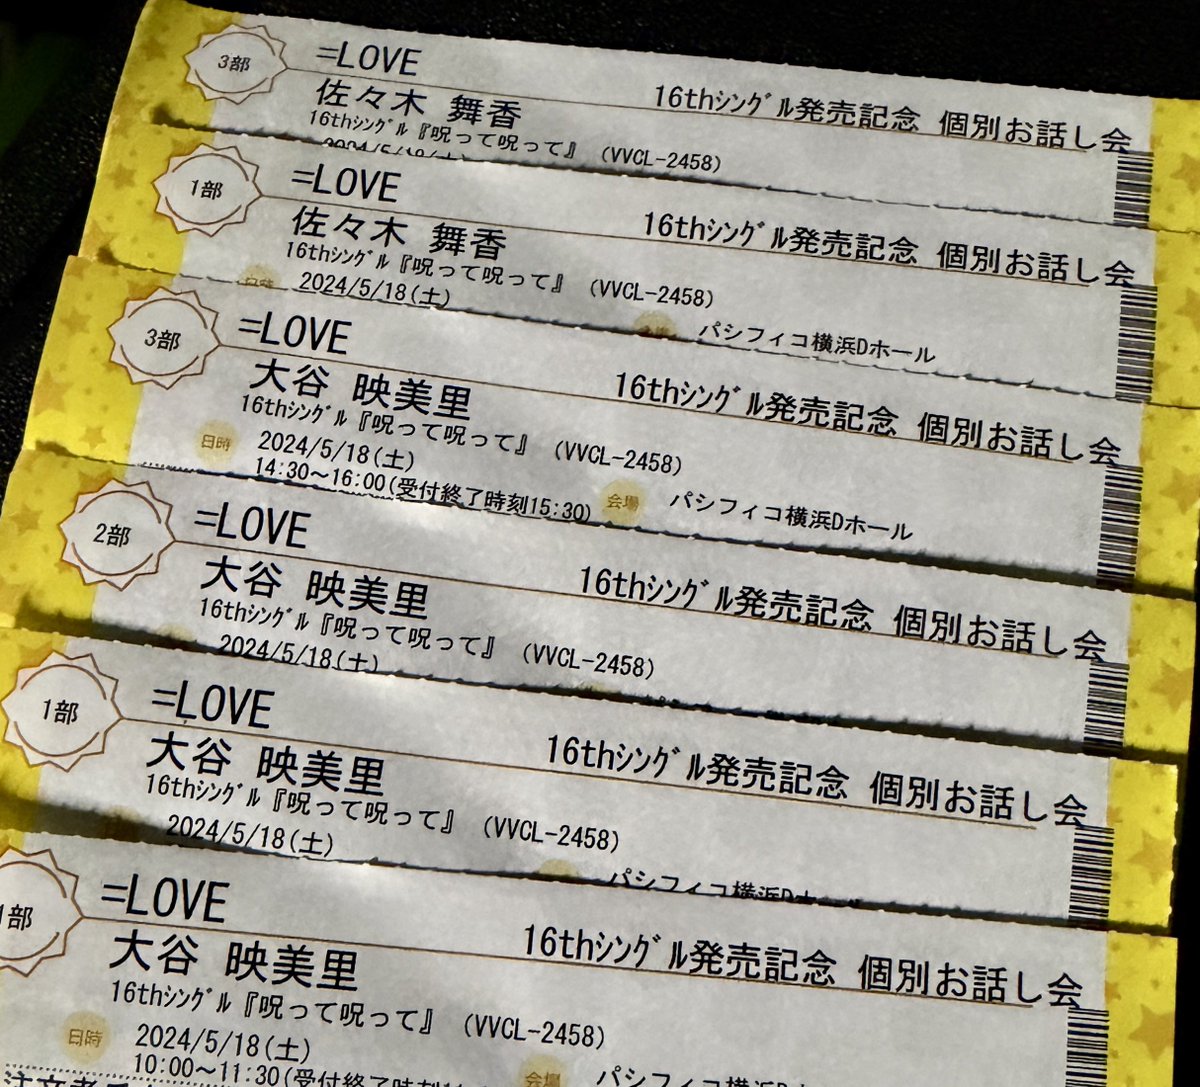 3部
=LOVE
16thｼﾝｸﾞﾙ発売記念 個別お話し会
佐々木 舞香
16thｼﾝｸﾞﾙ『呪って呪って』 (VVCL-2458)
2024/5/18(土)
1部
=LOVE
16thｼﾝｸﾞﾙ発売記念 個別お話し会
佐々木 舞香
16thｼﾝｸﾞﾙ『呪って呪って』 (VVCL-2458)
日時 2024/5/18(土)
会場 パシフィコ横浜Dホール
3部
=LOVE
16thｼﾝｸﾞﾙ発売記念 個別お話し会
大谷 映美里
16thｼﾝｸﾞﾙ『呪って呪って』 (VVCL-2458)
日時 2024/5/18(土)
14:30～16:00(受付終了時刻15:30)
会場 パシフィコ横浜Dホール
2部
=LOVE
16thｼﾝｸﾞﾙ発売記念 個別お話し会
大谷 映美里
16thｼﾝｸﾞﾙ『呪って呪って』 (VVCL-2458)
2024/5/18(土)
1部
=LOVE
16thｼﾝｸﾞﾙ発売記念 個別お話し会
大谷 映美里
16thｼﾝｸﾞﾙ『呪って呪って』 (VVCL-2458)
2024/5/18(土)
パシフィコ横浜Dホール
1部
=LOVE
16thｼﾝｸﾞﾙ発売記念 個別お話し会
大谷 映美里
16thｼﾝｸﾞﾙ『呪って呪って』 (VVCL-2458)
日時 2024/5/18(土)
10:00～11:30(受付終了時刻
会場 パシフィコ横浜